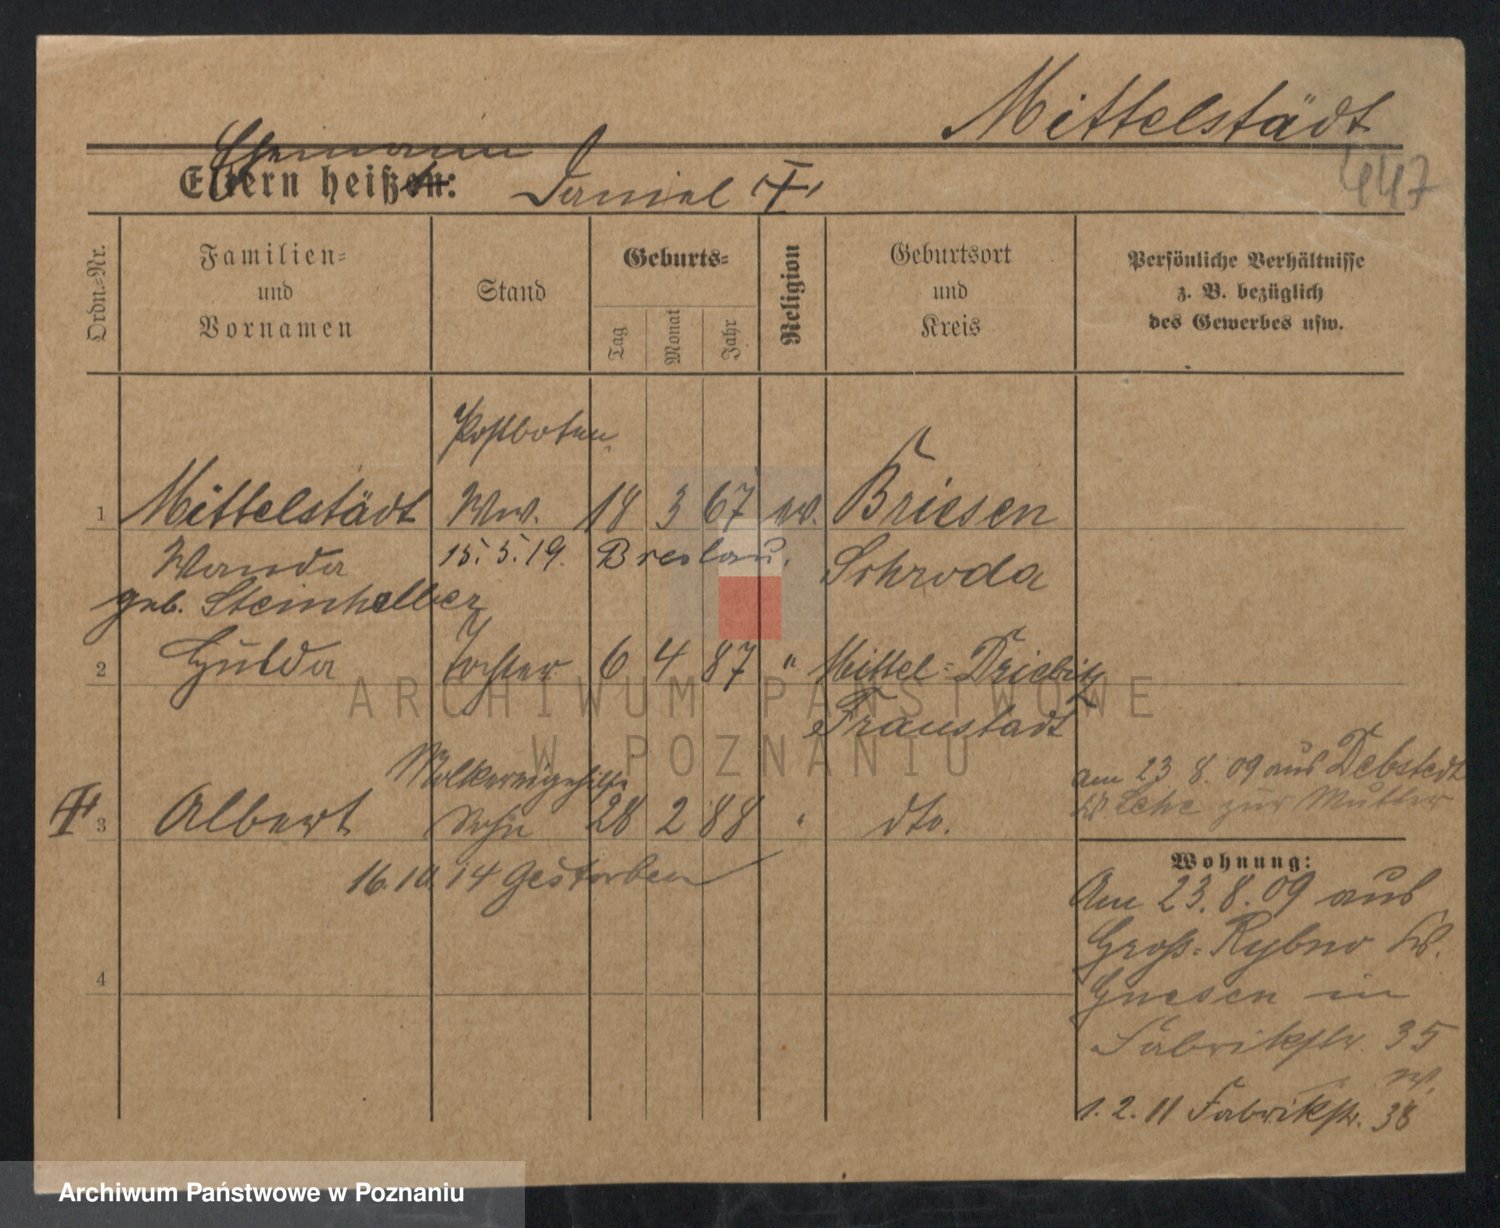 Mittelstädt
447
Ehemann
Eltern heißen: Daniel (†)
Ordn.-Nr.
Familien-
und
Vornamen
Stand
Geburts-
Tag
Monat
Jahr
Religion
Geburtsort
und
Kreis
Persönliche Verhältnisse
z. B. bezüglich
des Gewerbes usw.
Postboten
1 Mittelstädt Ww. 18 3 67 ev. Briesen
Wanda 15.5.19. Breslau. Schroda
geb. Steinhelber
2 Hulda Tochter 6 4 87 " Mittel-Driebitz
Fraustadt
Molkereigehilfe
† 3 Albert Sohn 28 2 88 " dto.
am 23 8. 09 aus Debstedt
Kr. Lehe zur Mutter
16.10.14 gestorben
Wohnung:
Am 23.8.09 aus
Groß-Rybno Kr.
4
Gnesen in
Fabrikstr. 35
1.2.11 Fabrikstr. 38
ARCHIWUM PAŃSTWOWE
W POZNANIU
Archiwum Państwowe w Poznaniu